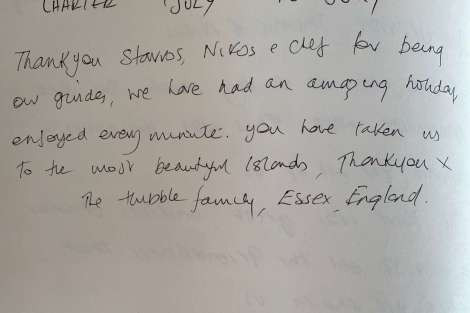 CHARTER JULY JULY
Thankyou Stavros, Nikos & Clef for being
our guides, we have had an amazing holiday,
enjoyed every minute. you have taken us
to the most beautiful Islands, Thankyou x
The Hubble family, Essex, England.